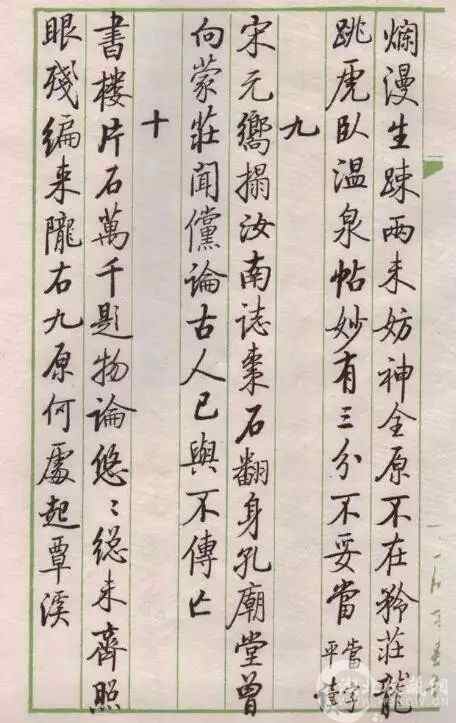 爛漫生踈兩未妨神全原不在矜莊龍
跳虎臥温泉帖妙有三分不妥當當字平讀
九
宋元嚮搨汝南誌棗石翻身孔廟堂曾
向蒙莊聞儻論古人已與不傳亡
十
書樓片石萬千題物論悠〻總未齊照
眼殘編来隴右九原何處起覃溪